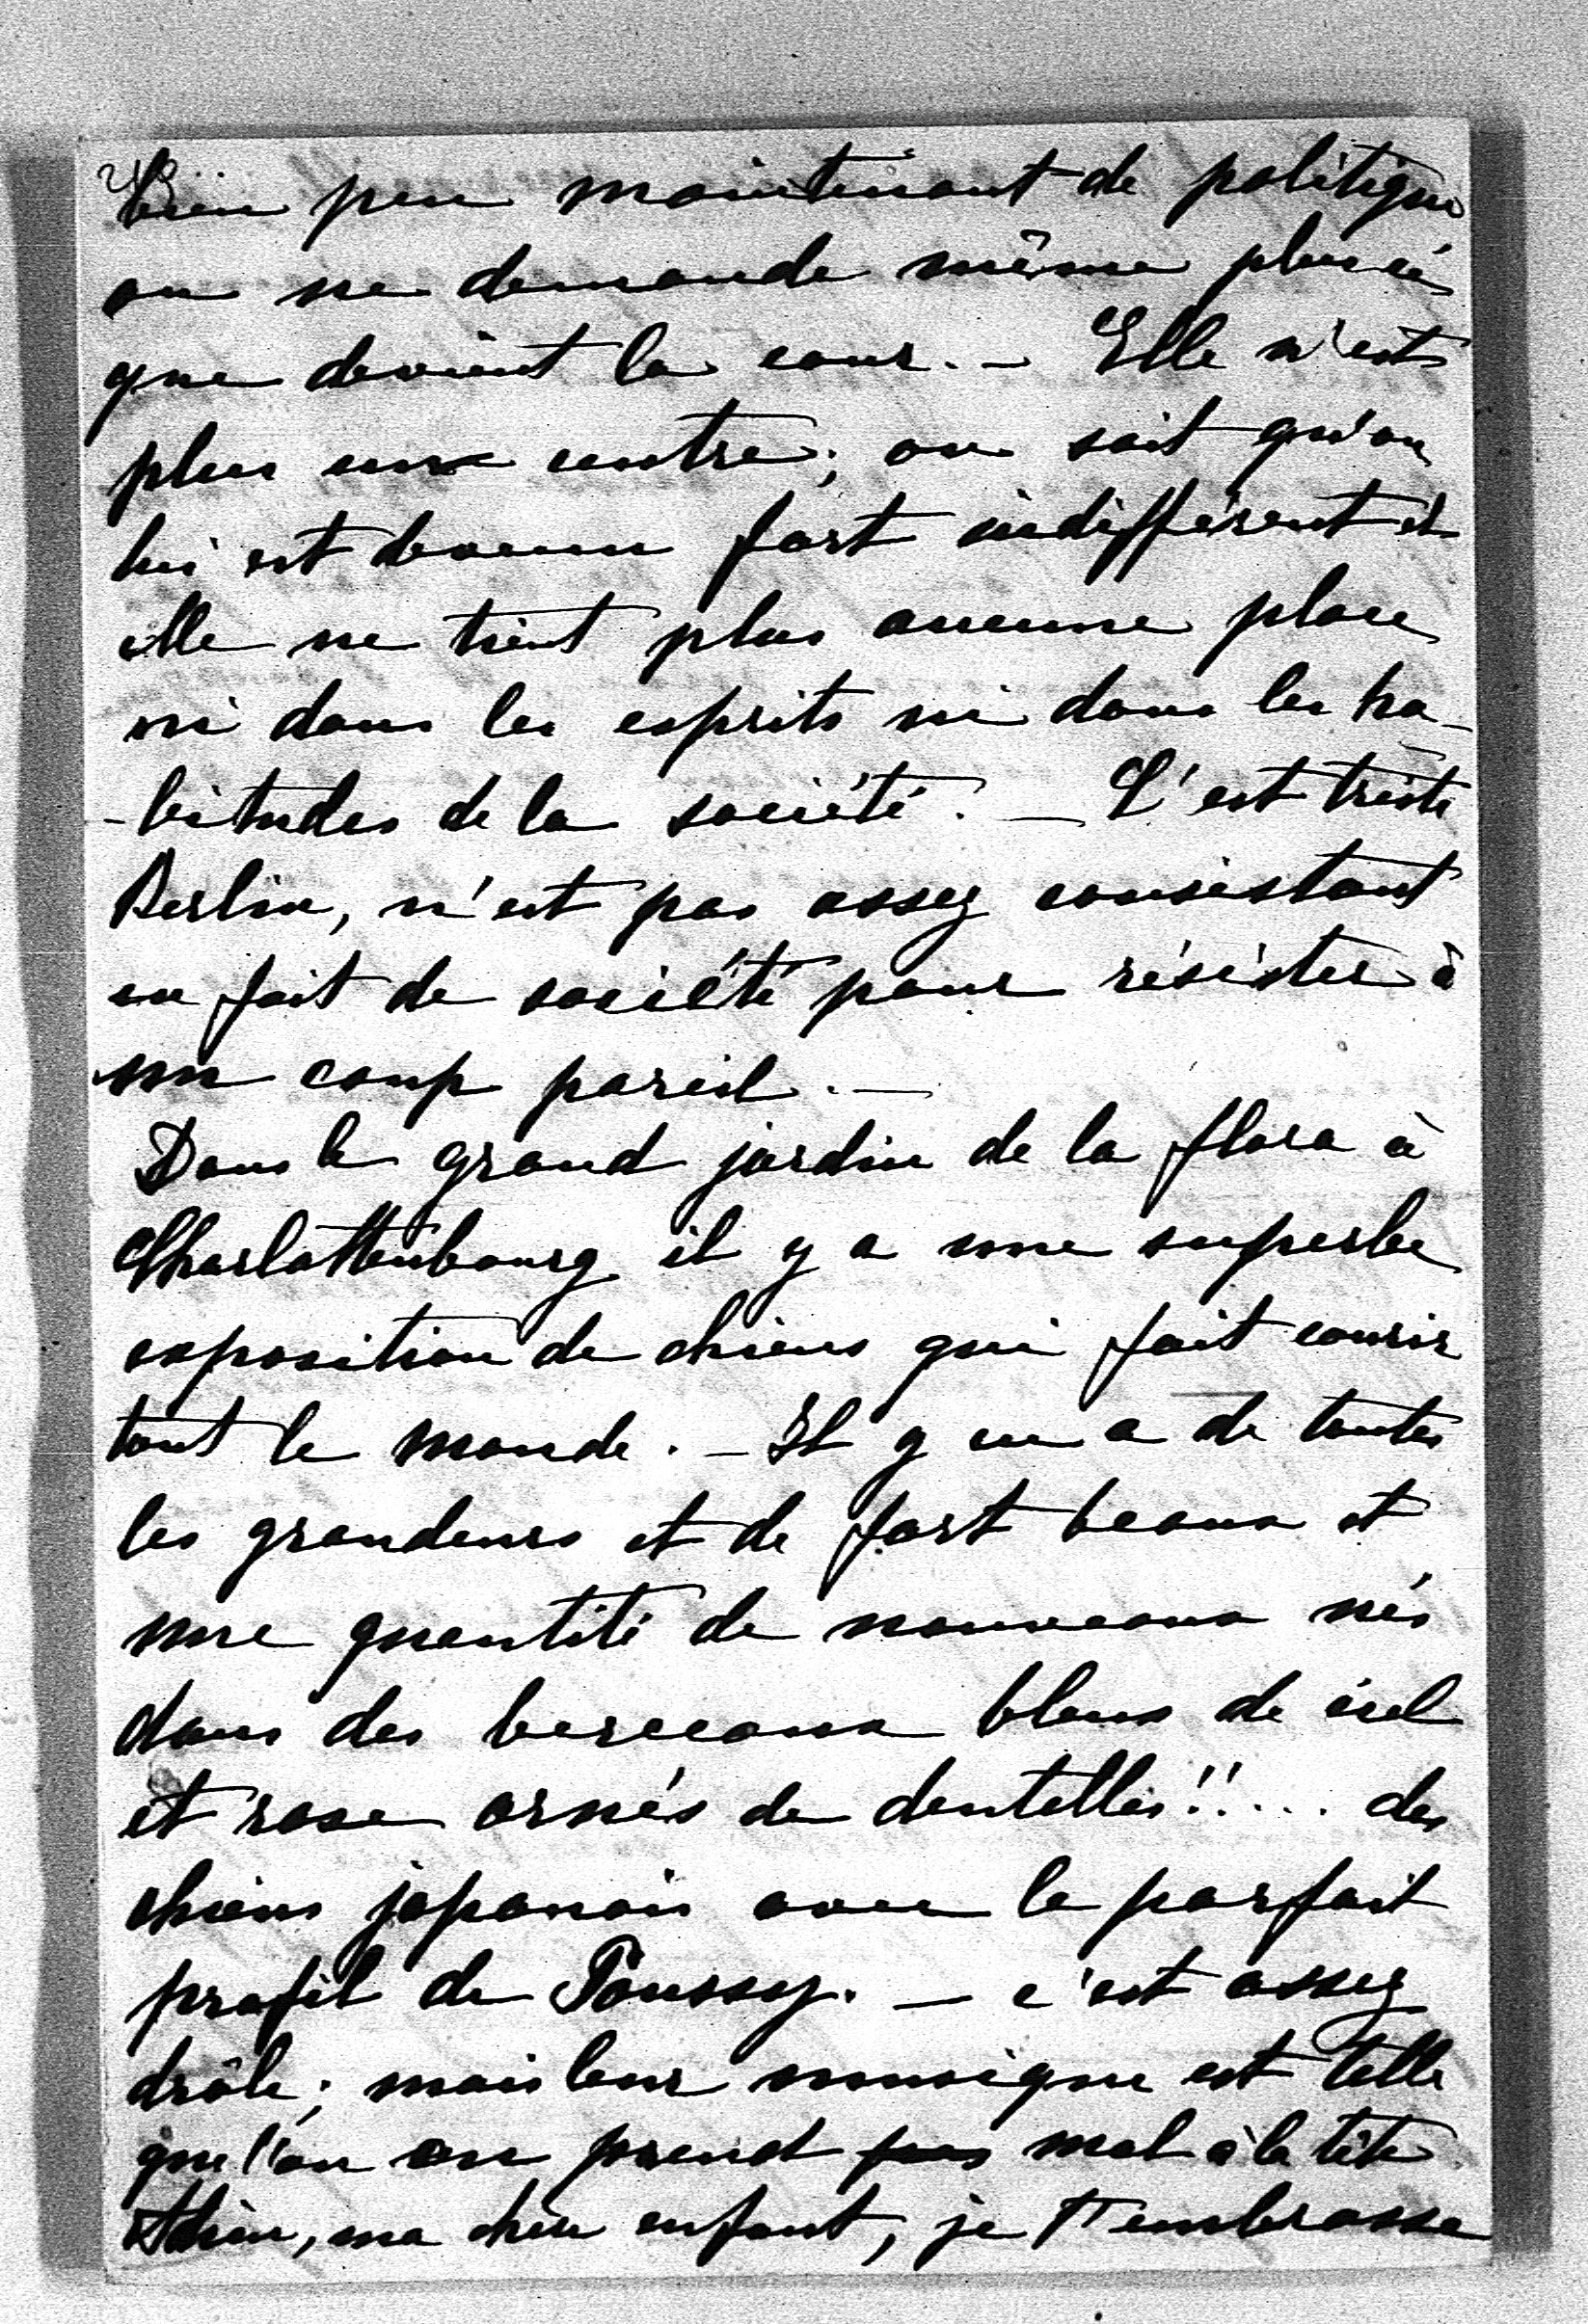 bien peu maintenant de politique
on ne demande même plus ce
que devient la cour. – Elle n'est
plus un centre; on sait qu'on
lui est devenu fort indifférent et
elle ne tient plus aucune place
ni dans les esprits ni dans les ha-
-bitudes de la société. – C'est triste
Berlin, n'est pas assez consistant
en fait de société pour résister à
un coup pareil. –
Dans le grand jardin de la flora à
Charlottenbourg il y a une superbe
exposition de chiens qui fait courir
tout le monde. – Il y en a de toutes
les grandeurs et de fort beaux et
une quantité de nouveaux nés
dans des berceaux bleus de ciel
et rose ornés de dentelles!!... des
chiens japonais avec le parfait
profil de Poussy. – c'est assez
drôle; mais leur musique est telle
que l'on en prend mal à la tête
Adieu, ma chère enfant, je t'embrasse